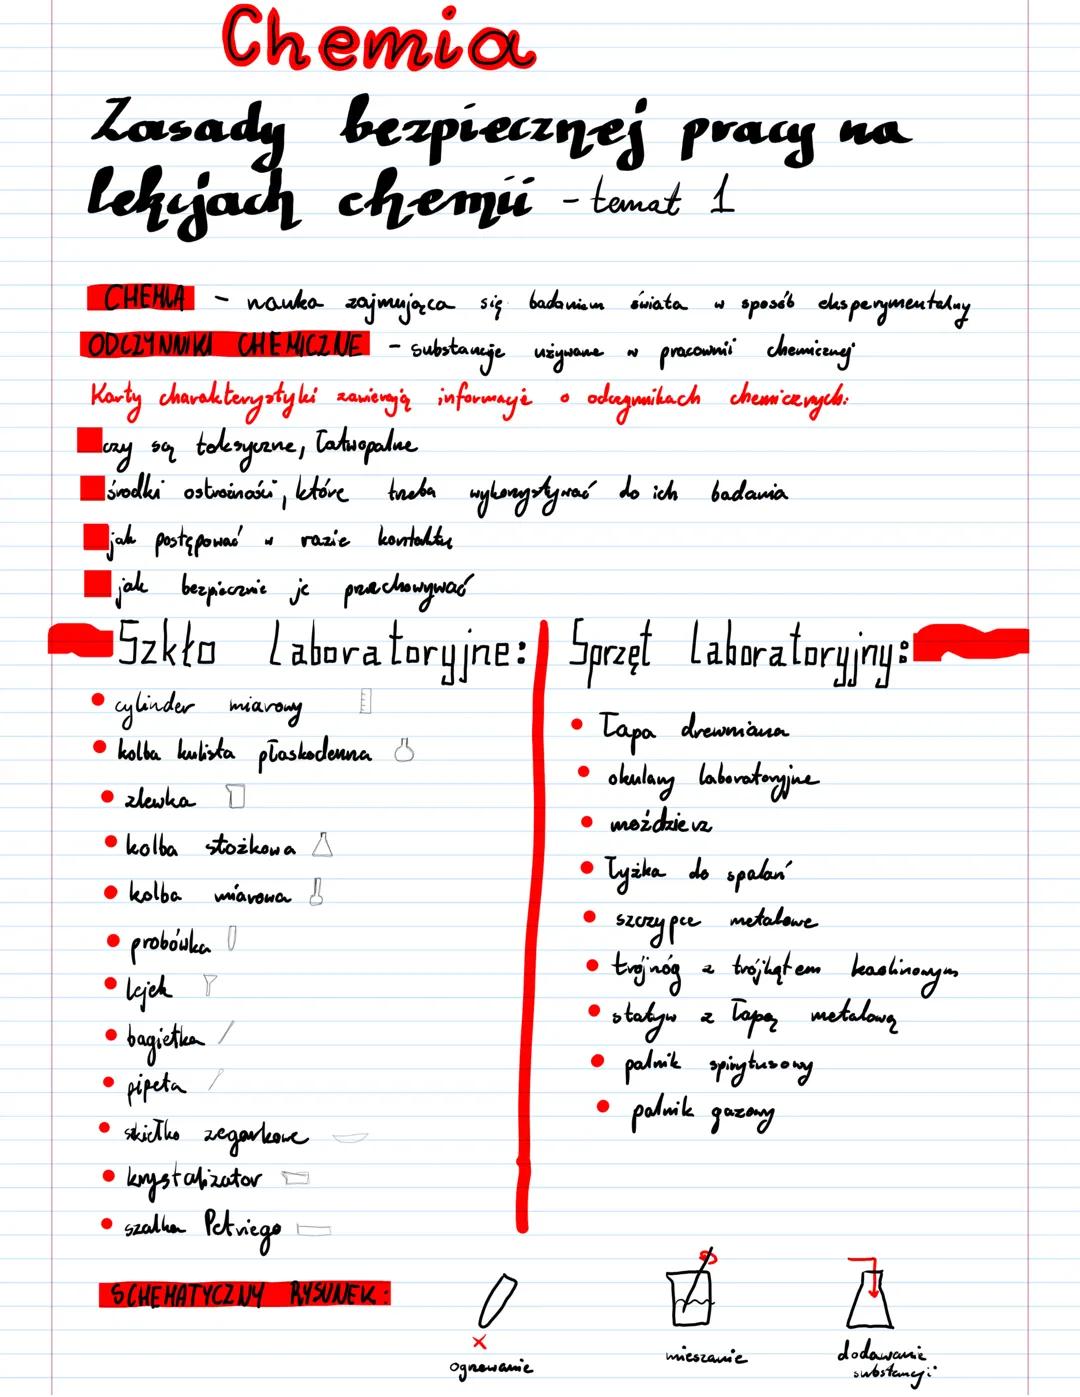 Chemia
Zasady bezpiecznej pracy na
lekcjach chemii - temat 1
CHEMIA - nauka zajmująca się badaniem świata w sposób eksperymentalny
ODCZYNNIKI CHEMICZNE - substancje używane w pracownii chemicznej
Karty charakterystyki zawierają informacje o odczynnikach chemicznych:
czy są toksyczne, łatwopalne
środki ostrożności, które trzeba wykorzystywać do ich badania
jak postępować w razie kontaktu
jak bezpiecznie je przechowywać
Szkło laboratoryjne:
cylinder miarowy
kolba kulista płaskodenna
zlewka
kolba stożkowa
kolba miarowa
probówka
lejek
bagietka
pipeta
szkiełko zegarkowe
krystalizator
szalka Petriego
Sprzęt laboratoryjny:
łapa drewniana
okulary laboratoryjne
moździerz
łyżka do spalań
szczypce metalowe
trójnóg z trójkątem kaolinowym
statyw z łapą metalową
palnik spirytusowy
palnik gazowy
SCHEMATYCZNY RYSUNEK:
ogrzewanie
mieszanie
dodawanie
substancji